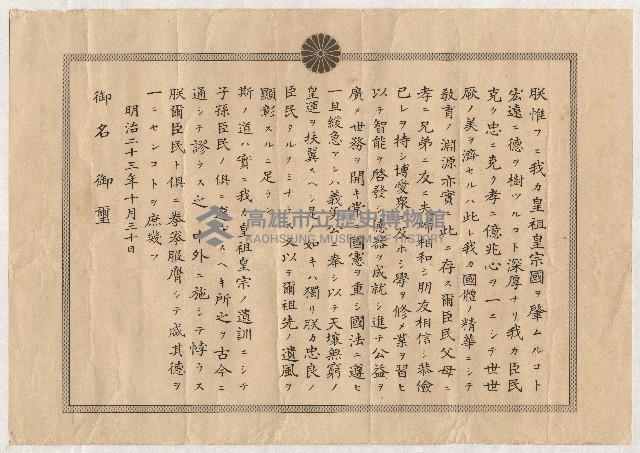 朕惟フニ我カ皇祖皇宗國ヲ肇ムルコト
宏遠ニ德ヲ樹ツルコト深厚ナリ我カ臣民
克ク忠ニ克ク孝ニ億兆心ヲ一ニシテ世世
厥ノ美ヲ濟セルハ此レ我カ國體ノ精華ニシテ
敎育ノ淵源亦實ニ此ニ存ス爾臣民父母ニ
孝ニ兄弟ニ友ニ夫婦相和シ朋友相信シ恭儉
己レヲ持シ博愛衆ニ及ホシ學ヲ修メ業ヲ習ヒ
以テ智能ヲ啓發シ德器ヲ成就シ進テ公益ヲ
廣メ世務ヲ開キ常ニ國憲ヲ重シ國法ニ遵ヒ
一旦緩急アレハ義勇公ニ奉シ以テ天壤無窮ノ
皇運ヲ扶翼スヘシ是ノ如キハ獨リ朕カ忠良ノ
臣民タルノミナラス又以テ爾祖先ノ遺風ヲ
顯彰スルニ足ラン
斯ノ道ハ實ニ我カ皇祖皇宗ノ遺訓ニシテ
子孫臣民ノ俱ニ遵守スヘキ所之ヲ古今ニ
通シテ謬ラス之ヲ中外ニ施シテ悖ラス
朕爾臣民ト俱ニ拳拳服膺シテ咸其德ヲ
一ニセンコトヲ庶幾フ
明治二十三年十月三十日
御名御璽
高雄市立歷史博物館
KAOHSIUNG MUSEUM OF HISTORY